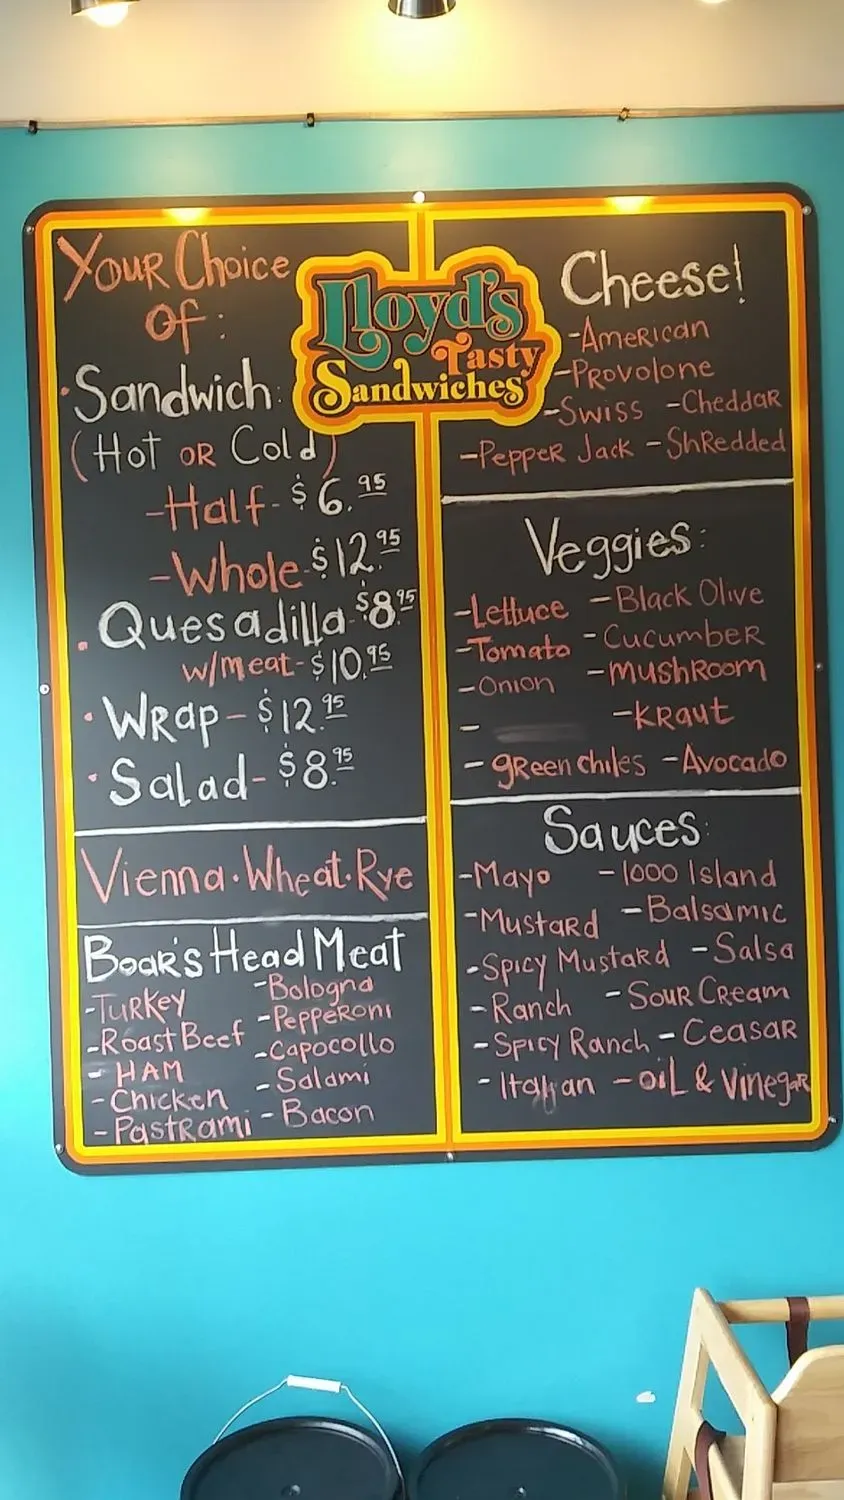 Your Choice
Of:
Lloyd's
Tasty
Sandwiches
• Sandwich:
(Hot or Cold)
-Half- $6.95
-Whole $12.95
• Quesadilla-$8.95
w/meat-$10.95
• Wrap - $12.95
• Salad- $8.95
Vienna • Wheat • Rye
Boar's Head Meat
-Turkey -Bologna
-Roast Beef -Pepperoni
- HAM -Capocollo
-Chicken - Salami
-Pastrami - Bacon
Cheese!
-American
-Provolone
-Swiss -Cheddar
-Pepper Jack -Shredded
Veggies:
-Lettuce -Black Olive
-Tomato -Cucumber
-Onion -mushroom
- -Kraut
- green chiles -Avocado
Sauces:
-Mayo -1000 Island
-Mustard -Balsamic
-Spicy Mustard -Salsa
-Ranch -Sour Cream
-Spicy Ranch -Ceasar
-Italian -oil & Vinegar